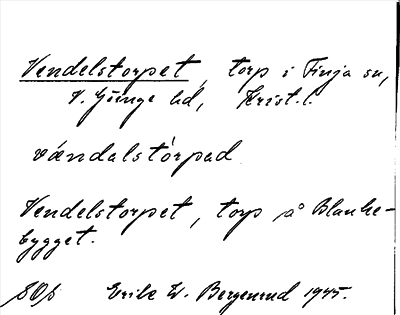 Vendelstorpet, torp i Finja sn,
V. Göinge hd, Krist. l.
vændalstórpad
Vendelstorpet, torp på Blanke-
bygget.
Erik W. Bergenrud 1945.